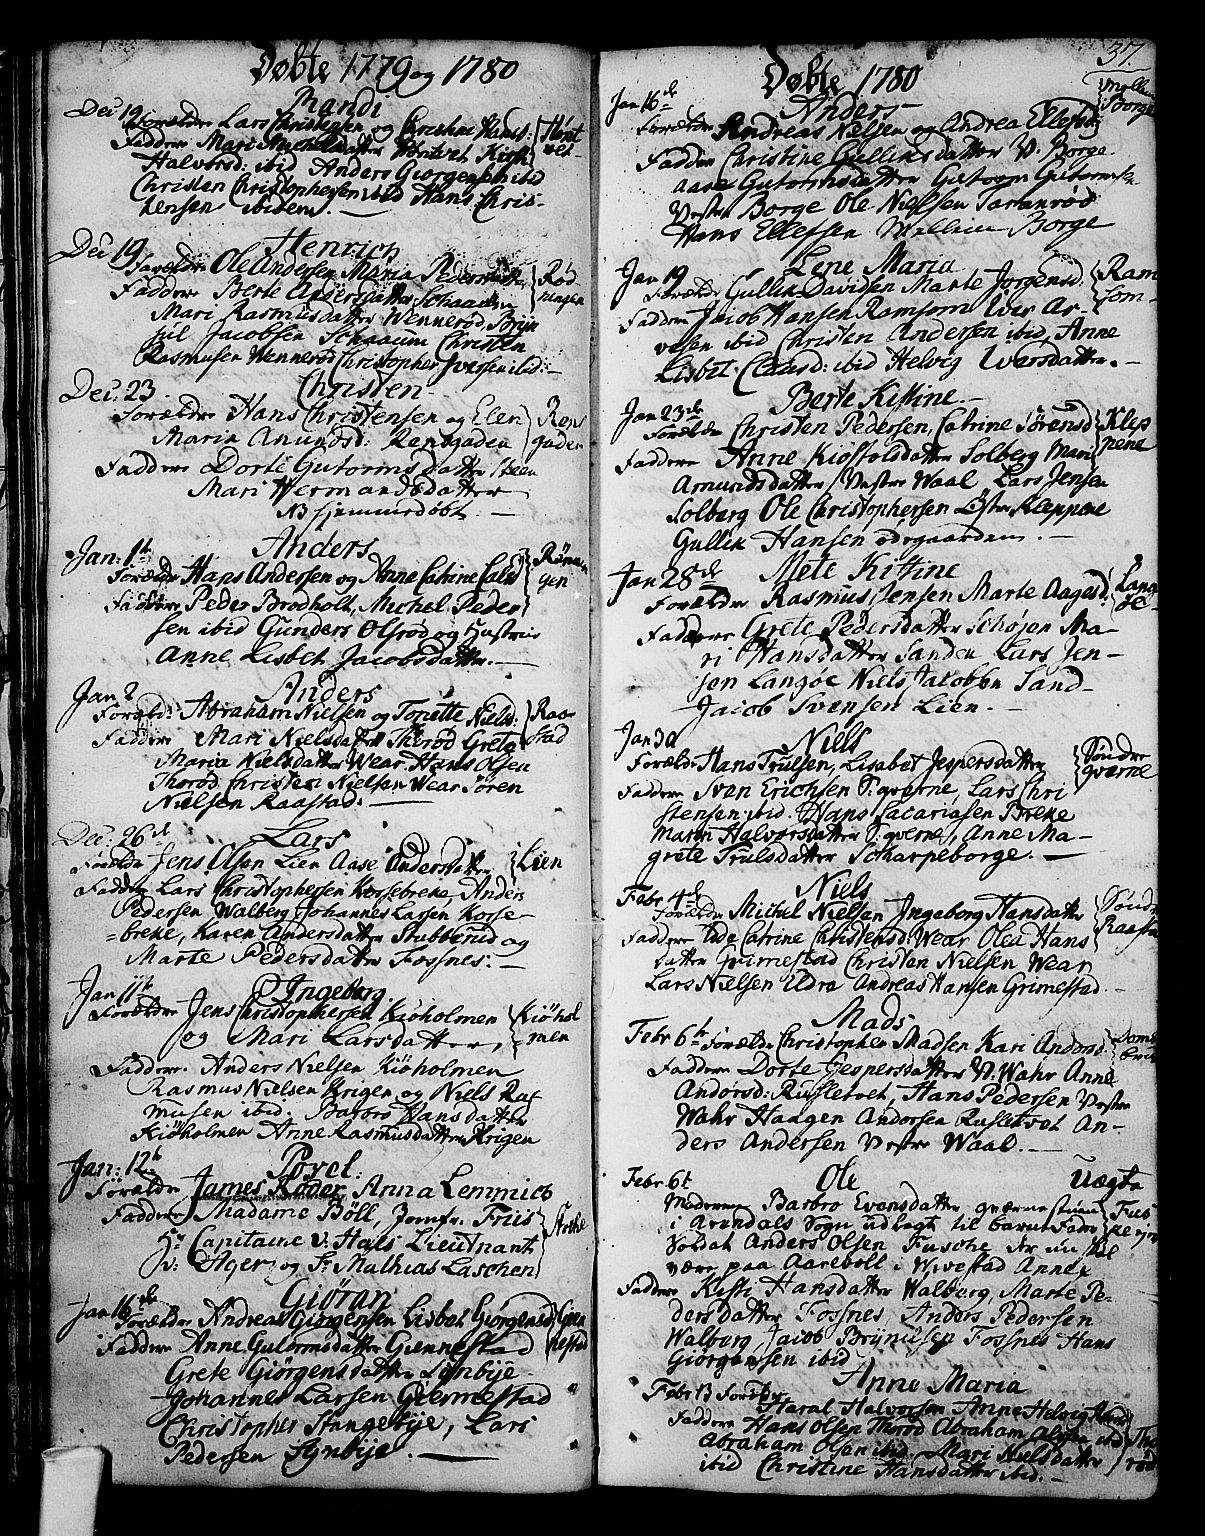 Døbte 1779 og 1780
Dec: 19 Randi
Forældre Lars Christensen og Christine Hansd: Hornt
Fadder Mari Michelsdatter Kirsti
Halvorsd: ibid Anders Giorgensen ibid
Christen Christophersen ibid Hans Chris-
tensen ibidem. —
Dec 19 Henrich
Forældre Ole Andersen Maria Pedersdatter Rød-
Faddere Berte Andersdatter Schaauen ningen
Mari Rasmusdatter Wennerød, Bryn
jul Jacobsen Schaaum Christen
Rasmusen Wennerød Christopher Iversen ibid: —
Dec: 23 Christen
Forældre Hans Christensen og Elen
Maria Amundsd: Rensgaden
Faddere Dorte Gutormsdatter
Mari Hermansdatter
NB hjemmedøbt. —
Jan: 1te Anders
Forældre Hans Andersen og Anne Catrine Rønnin
Faddere Peder Brodholt, Michel Peder gen
sen ibid Gunders Olsrød og Hustrue
Anne Lisbet Jacobsdatter. —
Jan 2 Anders
Foræld: Abraham Nielsen og Torette Niels: Raa
Faddere Mari Nielsdatter Therød Grete stad
Maria Nielsdatter Wear Hans Olsen
Therød Christen Nielsen Wear Søren
Nielsen Raastad: —
Dec: 26de Lars
Forældre Jens Olsen Lien Aase Andersdatter Lien
Faddere Lars Christophersen Korsebreke, Anders
Pedersen Walberg Johannes Larsen Korse-
=breke, Karen Andersdatter Stubberud og
Marte Pedersdatter Fossnes. —
Jan 11te Ingeborg
Forældre Jens Christophersen Kiøholmen Kiøhol
og Mari Larsdatter, men
Faddere Anders Nielsen Kiøholmen
Rasmus Nielsen Krigen og Niels Ras
musen ibid. Barbro Hansdatter
Kiøholmen Anne Rasmusdatter Krigen
Jan: 12te Povel
Forældre James Røder Anna Lemmich
Faddere Madame Böll, Jomfr. Friis
Hr Capitaine v: Hals Lieutnant
v: Ager og Sr Mathias Laschen
Jan 16de Giøran
Forældre Andreas Giørgensen Lisbet Giørgensd Gien
Faddere Anne Gutormsdatter Giennestad nestad
Grete Giørgensdatter Lønbye
Johannes Larsen Giennestad
Christopher Stangebye, Lars
Pedersen Synbye. —
37.
Døbte 1780
Jan 16de Anders Mellum
Forældre Andreas Nielsen og Andrea Ellefsd: Borge
Fadder Christine Gulliksdatter V. Borge
Aase Gutormsdatter Gutorm Gutormsen
Vester Borge Ole Nielsen Tortenrød
Hans Ellefsen Mellum Borge
Jan 19 Lene Maria
Forældre Gullik Davidsen Marte Jørgensd Ram
Faddere Jacob Hansen Ramsom Iver Ar- som
vesen ibid Christen Andersen ibid, Anne
Lisbet Claasd: ibid Helvig Iversdatter. —
Jan 23de Berte Kistine. —
Forældre Christen Pedersen, Catrine Sørensd Klep
Faddere Anne Kiøstolsdatter Solberg Mari pene
Amundsdatter Vester Waal Lars Jensen
Solberg Ole Christophersen Øster Kleppene
Gullik Hansen ødegaarden. —
Jan 28de Mete Kistine
Forældre Rasmus Jensen Marte Aagesd: Lang
Faddere Grete Pedersdatter Schøjen Ma- øe
ri Hansdatter Sanden Lars Jen-
sen Langøe Niels Jacobsen Sand-
Jacob Svensen Lien. —
Jan 30 Niels
Forældre Hans Trulsen, Lisabet Jespersdatter Søndre
Faddere Sven Erichsen S: qverne, Lars Chri qverne
stensen ibid. Hans Sacariasen Breke
Maren Halvorsdatter S: qverne, Anne Ma-
grete Trulsdatter Scharpeborge. —
Febr 4de Niels
Forældre Michel Nielsen Ingeborg Hansdatter Søndr
Faddere Ide Catrine Christensd: Wear Olea Hans Raasta
datter Grimestad Christen Nielsen Wear
Lars Nielsen Eldre Andreas Hansen Grimestad.
Mads
Febr 6te Forældre Christopher Madsen Kari Andersd.
Faddere Dorte Jespersdatter N: Wahr Anne
Andorsd: Rusletvet, Hans Pedersen Vester
Wahr Haagen Andorsen Rusletvet An-
ders Andersen Vester Waal. —
Febr 6te Ole Uægte
Moderen Barbro Evensdatter qverne stuen
i Arendals Sogn udlagt til barne Fader
Soldat Anders Olsen Fusche der nu skal
være paa Aarebolt i Wivestad Annex
Faddere Kisti Hansdatter Walberg, Marte Pe-
dersdatter Fossnes, Anders Pedersen
Walberg Jacob Brynielsen Fossnes Hans
Giørgensen ibid
Anne Maria
Febr 13 Forældre
Haral Halvorsen Anne Helvig
Faddere Hans Olsen Therød Abraham Olsen ibid The
Abraham Olsen ibid. Mari Nielsdatter rød
ibid Christine Hansdatter ibid. —